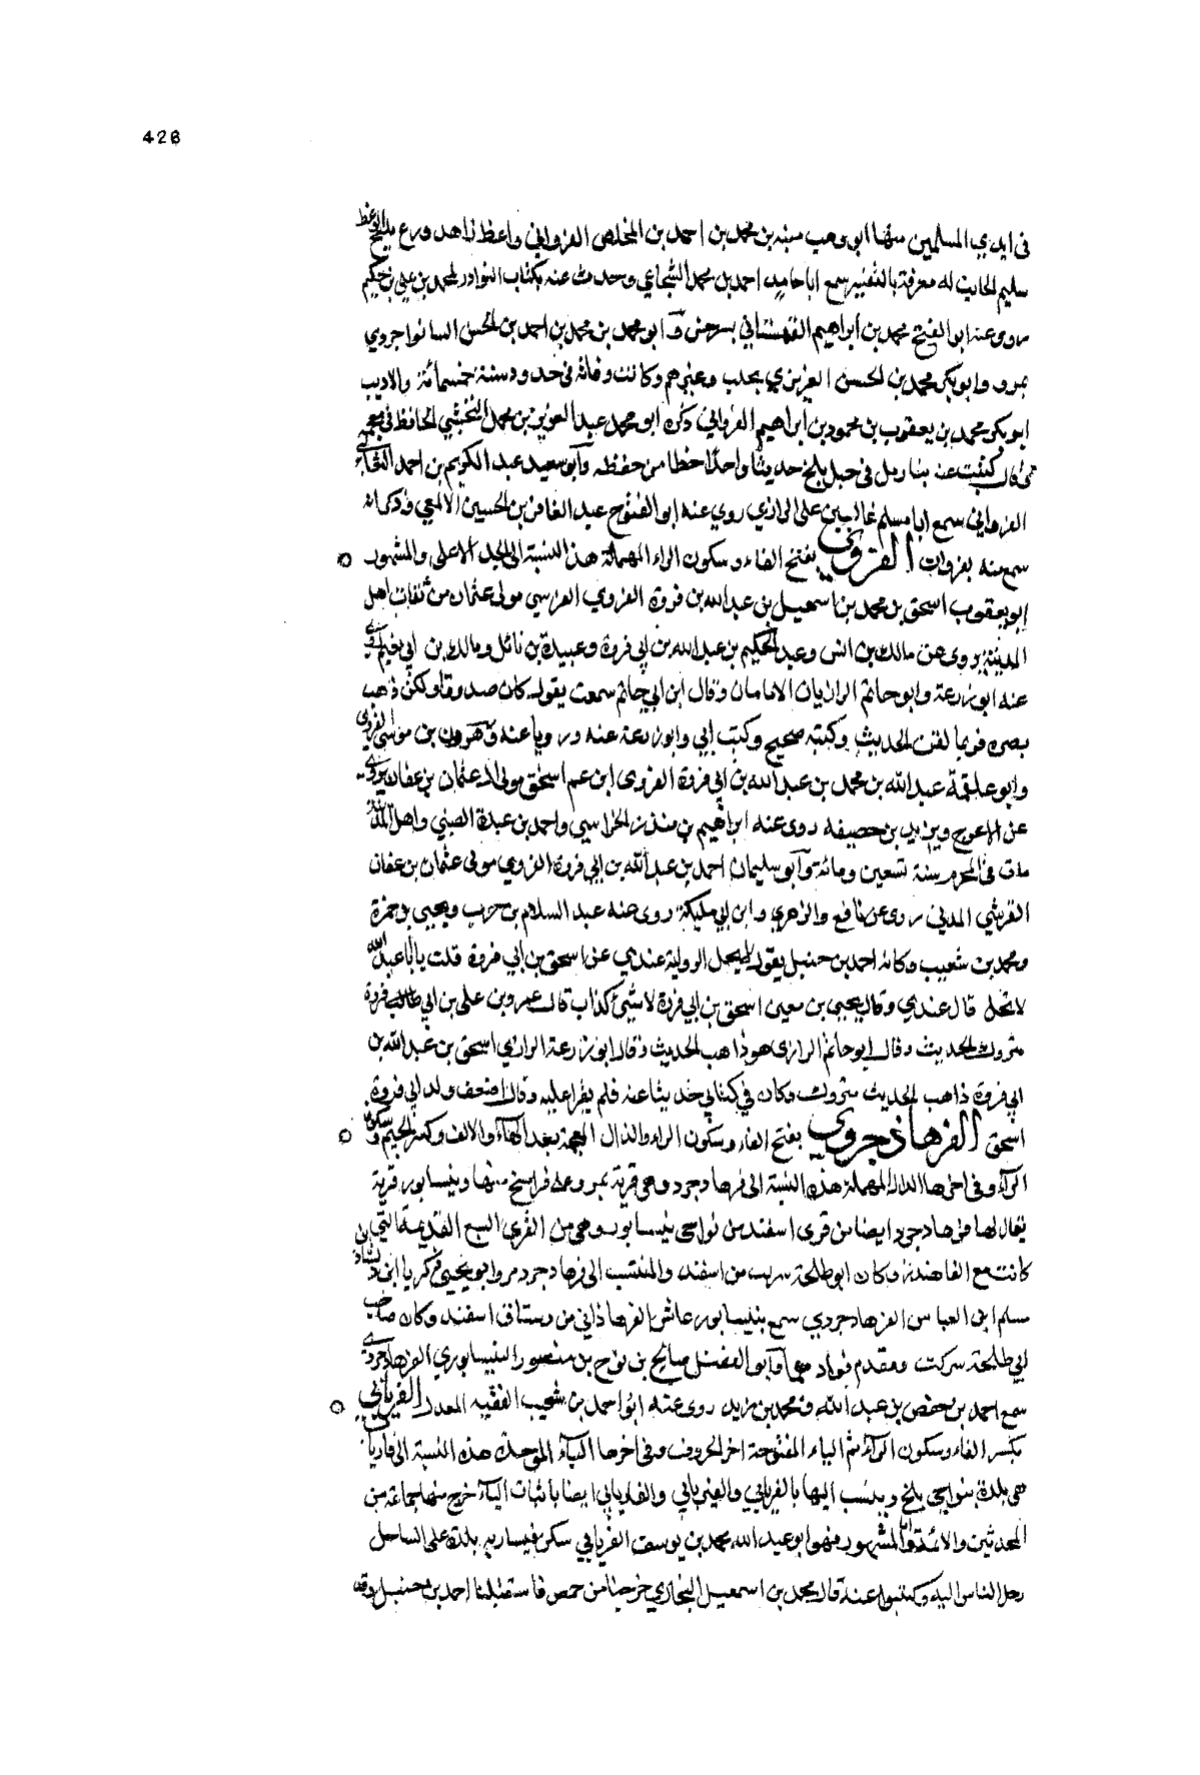 426
في ايدي المسلمين منها ابو وهب منبه بن محمد بن احمد بن المخلص الغزواني واعظ زاهد ورع مليح الوعظ
سليم الجانب له معرفة بالتفسير سمع ابا حامد احمد بن محمد الشجاعي وحدث عنه بكتاب النوادر لمحمد بن علي بن حكيم
روى عنه ابو الفتح محمد بن ابراهيم القهستاني بسرخس وابو محمد بن محمد بن احمد بن الحسن السانواجردي
بمرو وابو بكر محمد بن الحسن العزيزي بحلب وغيرهم وكانت وفاته في حدود سنة خمسمائة والاديب
ابو بكر محمد بن يعقوب بن محمود بن ابراهيم الغزواني ذكره ابو محمد عبد العزيز بن محمد النخشبي الحافظ في معجم
قال كتبت عنه حديثا واحدا خطا من حفظه وابو سعيد عبد الكريم بن احمد
سمع ابا مسلم غالب بن علي الرازي روى عنه ابو الفتوح عبد الغافر بن الحسين الالمعي وذكر انه
سمع منه بفروات الفروي بفتح الفاء وسكون الراء المهملة هذه النسبة الى الجد الاعلى والمشهور
ابو يعقوب اسحق بن محمد بن اسمعيل بن عبد الله بن فروة الفروي القرشي مولى عثمان من ثقات اهل
المدينة يروي عن مالك بن انس وعبد الحكيم بن عبد الله بن ابي فروة وعبيدة بن نائل ومالك بن ابي
عنه ابو زرعة وابو حاتم الرازيان الامامان وقال ابن ابي حاتم سمعت يقول كان صدوقا ولكن ذهب
بصره فربما لقن الحديث وكتبه صحيح وكتب ابي وابو زرعة عنه ورويا عنه وهرون بن موسى الفروي
وابو علقمة عبد الله بن محمد بن عبد الله بن ابي فروة الفروي ابن عم اسحق مولى لال عثمان بن عفان يروي
عن الاعرج ويزيد بن خصيفه روى عنه ابراهيم بن منذر الحزامي واحمد بن عبدة الضبي واهل المدينة
مات في المحرم سنة تسعين ومائة وابو سليمان احمد بن عبد الله بن ابي فروة الفروي مولى عثمان بن عفان
القرشي المدني روى عن نافع والزهري وابن ابي مليكة روى عنه عبد السلام بن حرب ويحيى بن حمزة
ومحمد بن شعيب وكان احمد بن حنبل يقول لا يحل الرواية عندي عن اسحق بن ابي فروة قلت يا ابا عبد الله
لا تحل قال عندي وقال يحيى بن معين اسحق بن ابي فروة لا شيء كذاب قال عمرو بن علي بن ابي فروة
متروك الحديث وقال ابو حاتم الرازي هو ذاهب الحديث وقال ابو زرعة الرازي اسحق بن عبد الله بن
ابي فروة ذاهب الحديث متروك وكان في كتابي حديثا عنه فلم يقرا عليه وقال اضعف ولد ابي فروة
اسحق الفرهاذجردي بفتح الفاء وسكون الراء والذال المعجمة بعد الهاء والالف وكسر الجيم وسكون
الراء وفي اخرها الدال المهملة هذه النسبة الى فرهادجرد وهي قرية بمرو على فراسخ منها وبنيسابور قرية
يقال لها فرهادجرد ايضا من قرى اسفند من نواحي نيسابور وهي من القرى السبع القديمة التي
كانت مع القاهندز وكان ابو طلحة سرب من اسفند والمنتسب الى فرهادجرد مرو ابو يحيى زكريا ابن
مسلم ابي العباس الفرهادجردي سمع بنيسابور الفرهاذاني من رستاق اسفند وكان صاحب
ابي طلحة سركت ومقدم وابو الفضل صالح بن نوح بن منصور النيسابوري الفرهادجردي
سمع احمد بن حفص بن عبد الله ومحمد بن يزيد روى عنه ابو احمد بن شعيب الفقيه المعدل الفريابي
بكسر الفاء وسكون الراء ثم الياء المفتوحة اخر الحروف وفي اخرها الباء الموحدة هذه النسبة الى فارياب
هي بلدة بنواحي بلخ وينسب اليها بالفريابي والفيريابي والفاريابي ايضا باثبات الياء خرج منها جماعة من
المحدثين والائمة والمشهور منهم ابو عبد الله محمد بن يوسف الفريابي سكن قيساريه بلدة على الساحل
رحل الناس اليه وكتبوا عنه قال محمد بن اسمعيل البخاري خرجنا من حمص فاستقبلنا احمد بن حنبل وقد